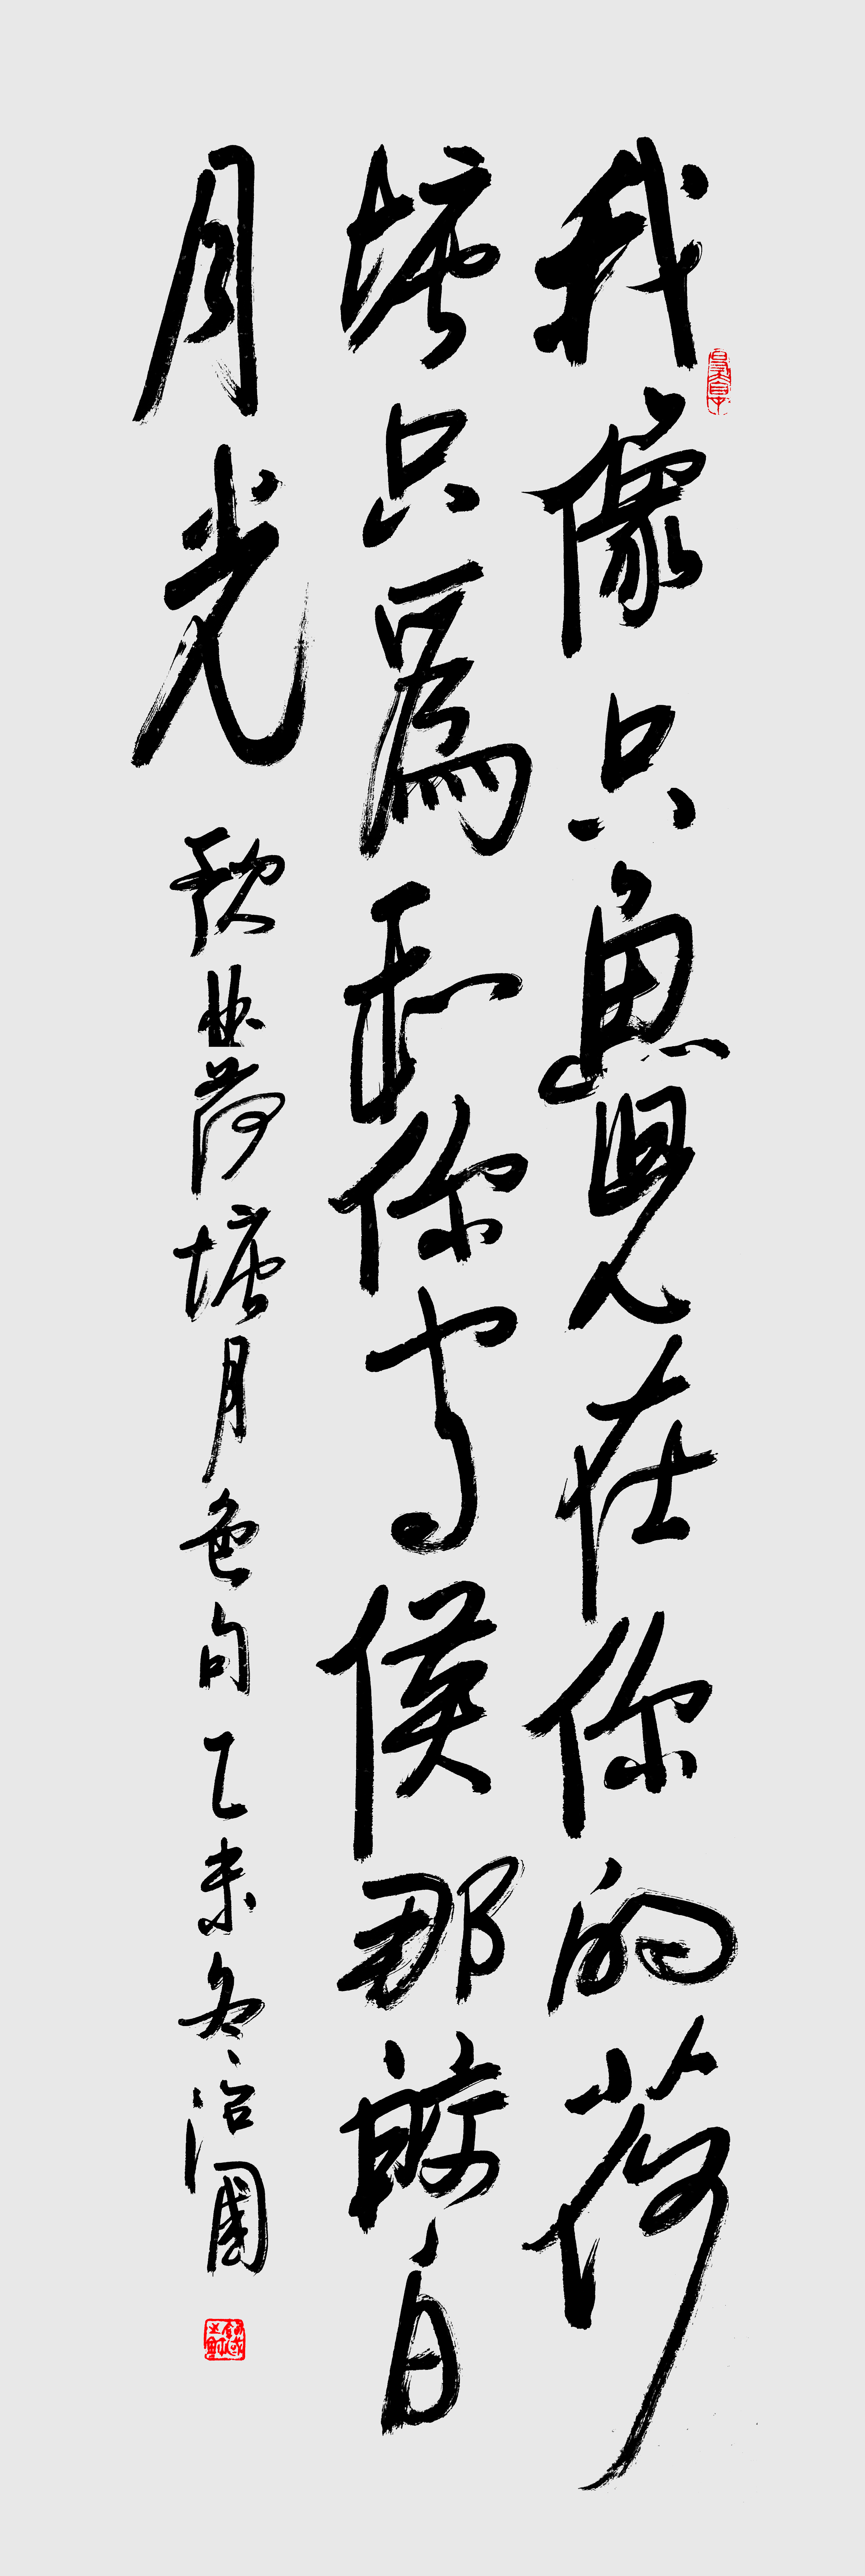 我像只魚兒在你的荷
塘只爲和你守候那皎白
月光 歌曲荷塘月色句乙未冬治國